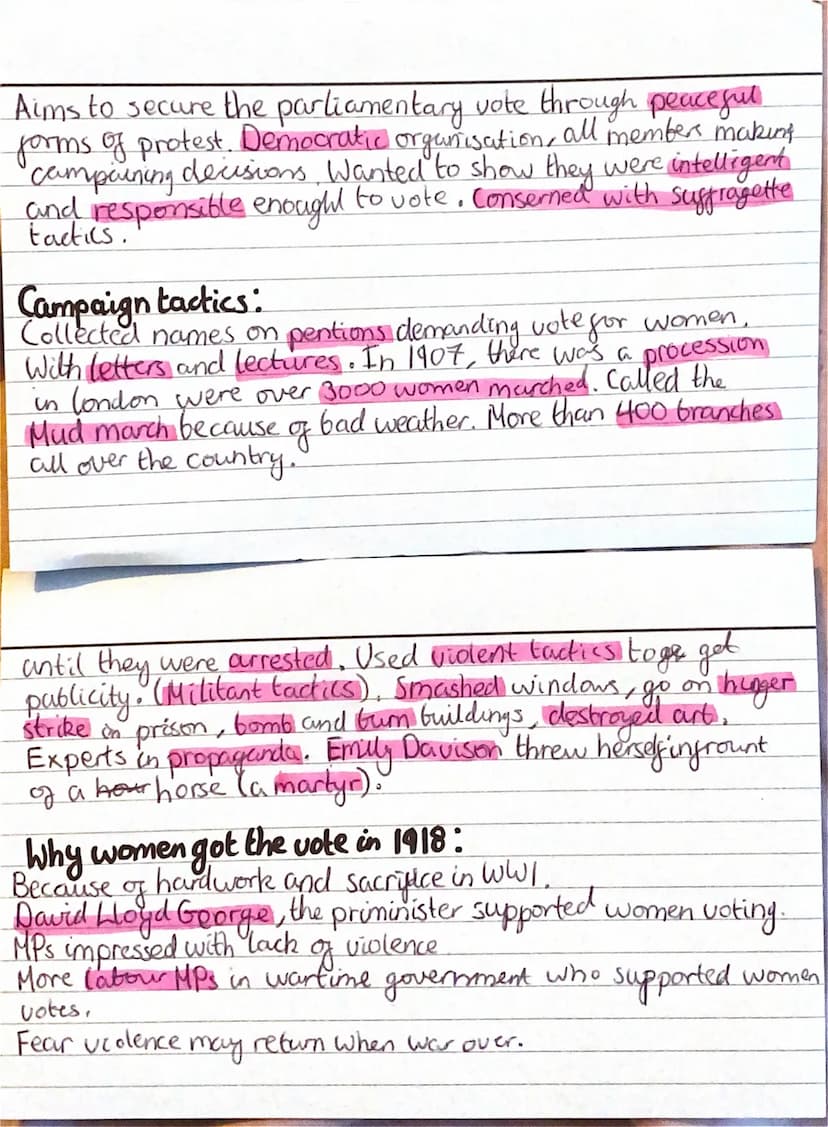 Aims to secure the parliamentary vote through peaceful
forms of protest. Democratic organisation, all members making
campaining decisions. Wanted to show they were intelligent
and responsible enought to vote. Conserned with suffragette
tactics.
Campaign tactics:
Collected names on pentions demanding vote for women,
With letters and lectures. In 1907, there was a procession
in london were over 3000 women marched. Called the
Mud march because of bad weather. More than 400 branches
all over the country.
until they were arrested. Used violent tactics to get
publicity. (Militant tactics). Smashed windows, go on hunger
strike in prison, bomb and burn buildings, destroyed art.
Experts in propaganda. Emily Davison threw herself infrount
of a horse (a martyr).
Why women got the vote in 1918:
Because of hardwork and sacrifice in WW1.
David Lloyd George, the priminister supported women voting.
MPs impressed with lack of violence
More labour MPs in wartime government who supported women
votes.
Fear violence may return when war over.